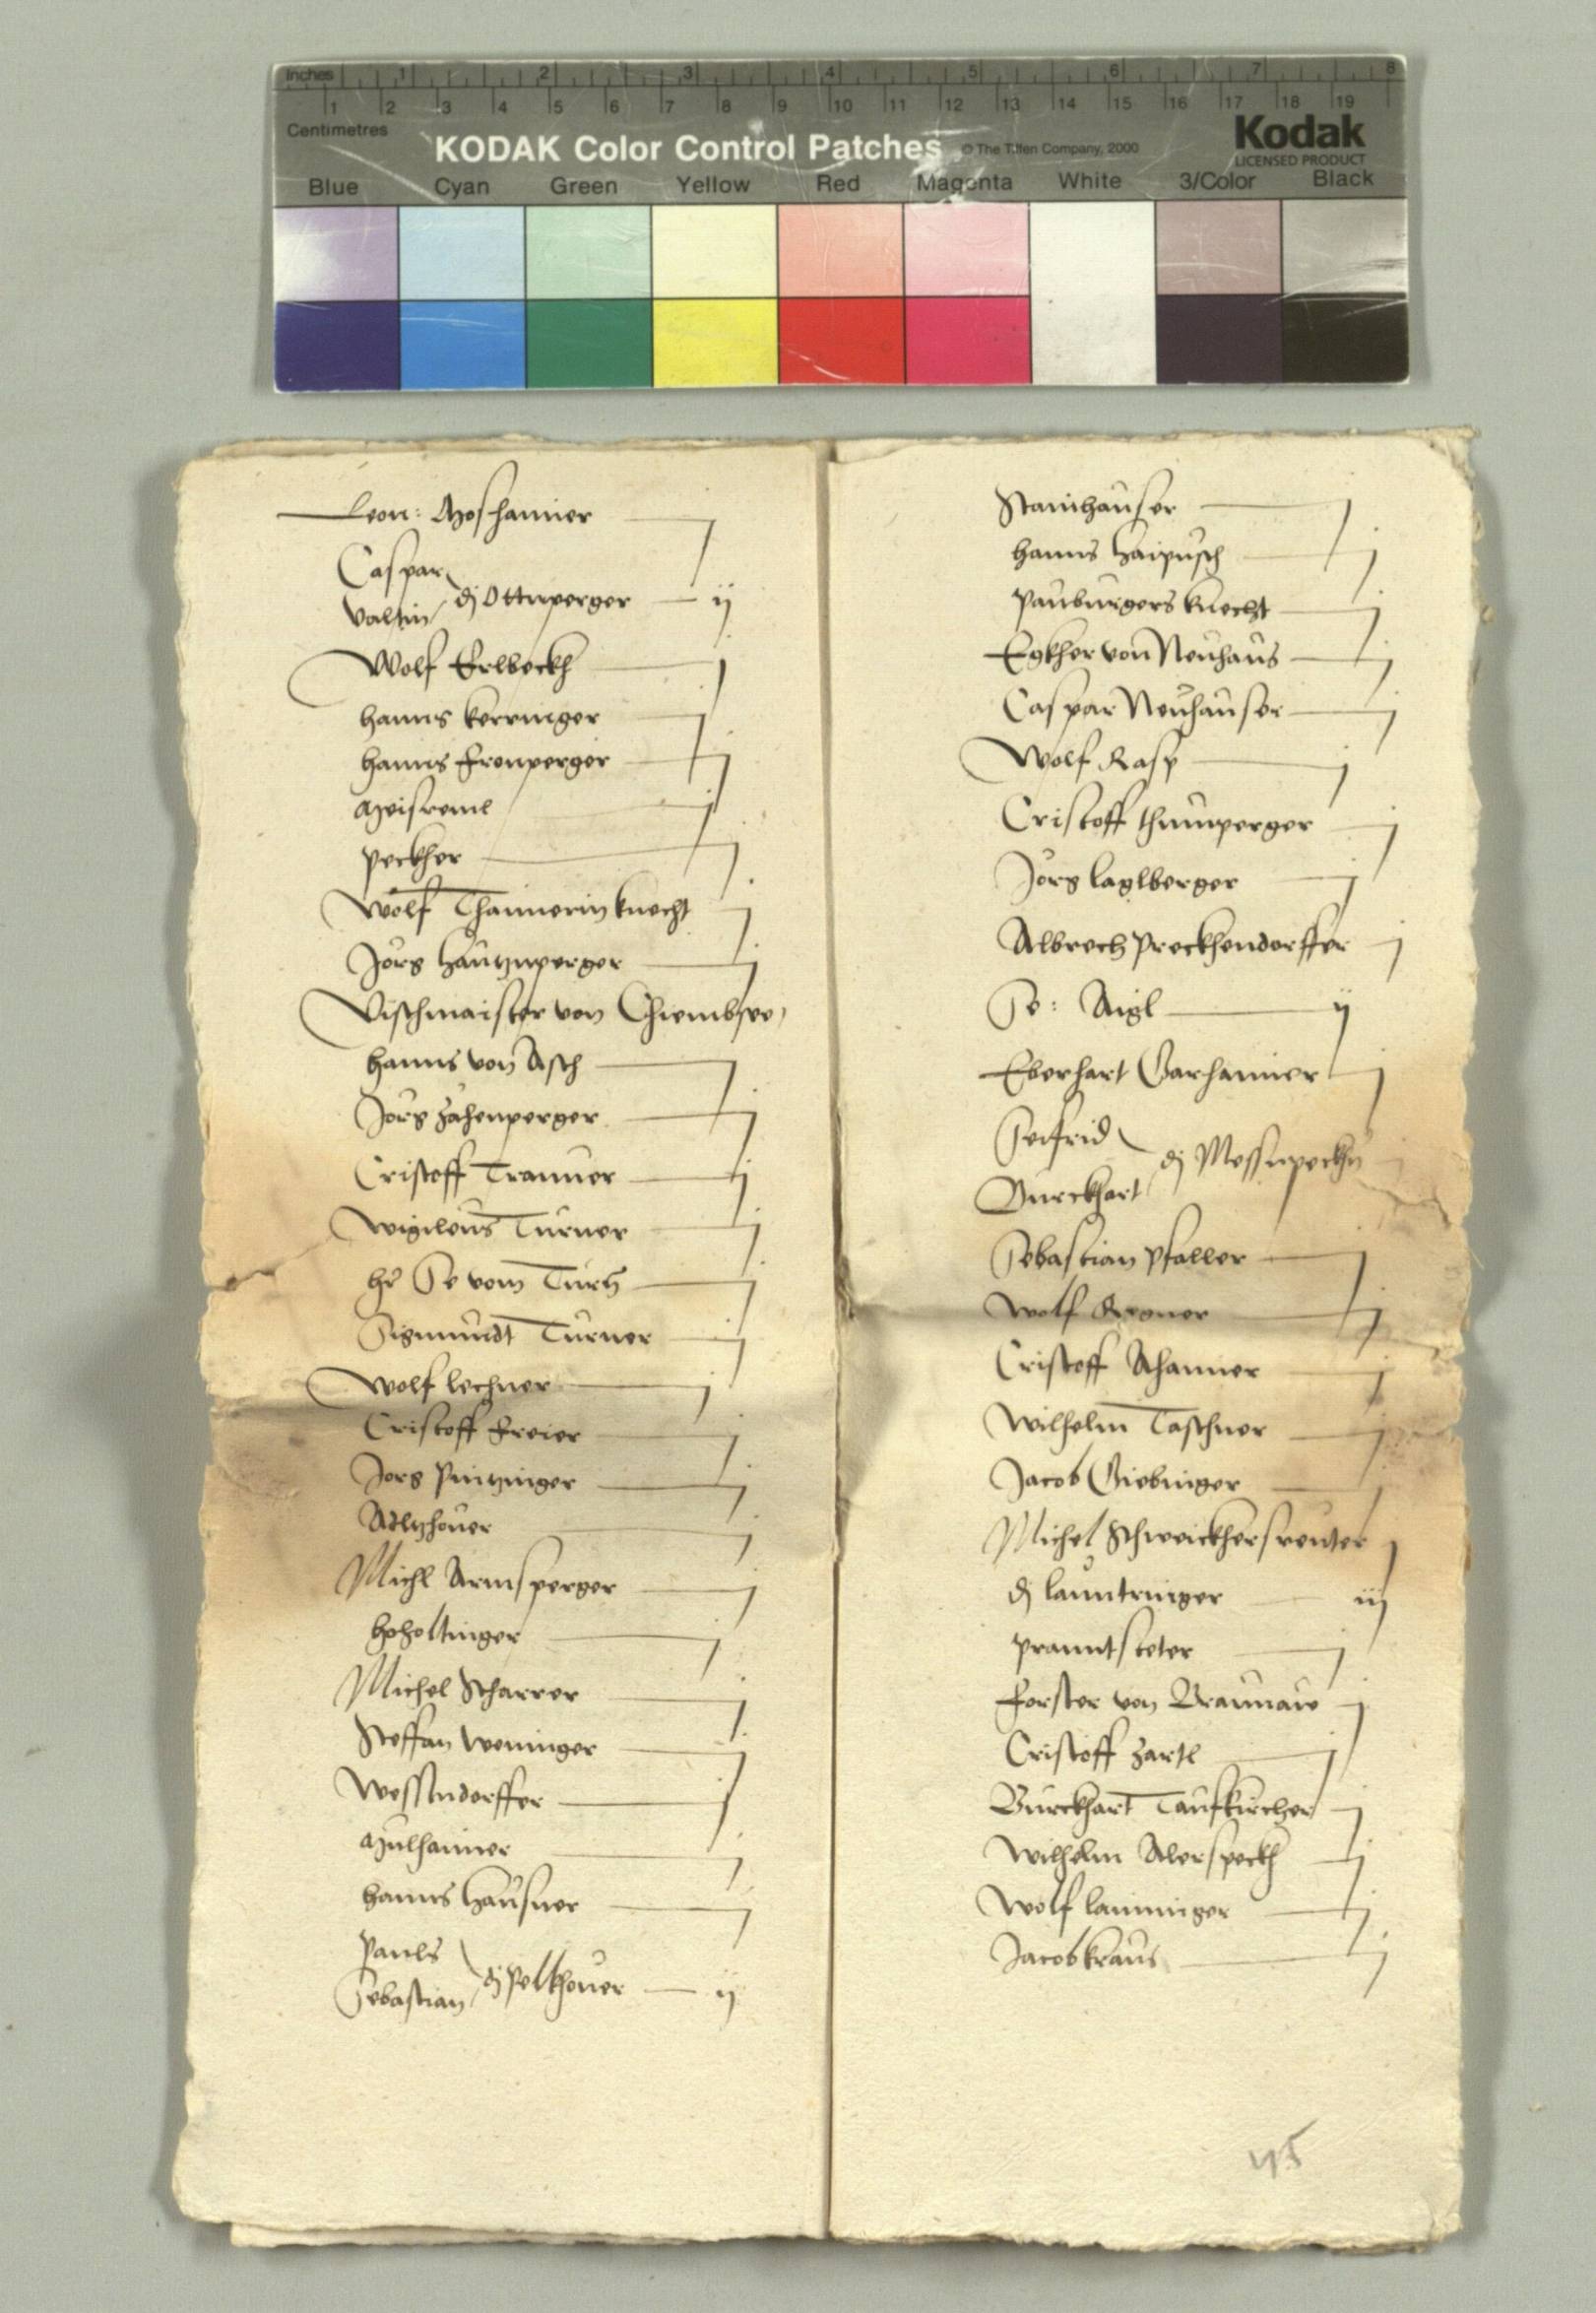 Inches 1 2 3 4 5 6 7 8
1 2 3 4 5 6 7 8 9 10 11 12 13 14 15 16 17 18 19
Centimetres
KODAK Color Control Patches © The Tiffen Company, 2000 Kodak
LICENSED PRODUCT
Blue Cyan Green Yellow Red Magenta White 3/Color Black
Leon: Moshaimer j
Caspar
Valtin dj Ottnperger ij
Wolf Erlbeckh j
hanns kerringer j
hanns Frenperger j
j
peckher j
Wolf Thannerin knecht j
Jörg Hautznperger j
Vischmaister von Chiembsee
hanns von Asch j
Jörg Zähenperger j
Cristoff Trauner j
Wigileus Turner j
her Se vom Turn j
Sigmundt Turner j
Wolf lechner j
Cristoff Freier j
Jorg Pintzinger j
Adltzhouer j
Michl Armsperger j
hoholtinger j
Michel Scharrer j
Steffan Weninger j
Wesstndorffer j
Mulhaimer j
hanns Hausner j
Pauls
Sebastian dj Pelkhouer ij
Stainhauser j
hanns j
Paurburgers knecht j
Egkher von Neuhaus j
Caspar Neuhauser j
Wolf Rasp j
Cristoff thumperger j
Jörg laglberger j
Albrech Preckhendorffer j
Se: Aigl ij
Eberhart Garhaimer j
Seifrid
Burckhart dj Messnpeckhn
Sebastian Pfaller j
Wolf j
Cristoff Ahamer j
Wilhelm Taschner j
Jacob Giebinger j
Michel Schweickhersreuter j
dj launtringer iij
pranntsteter j
Forster von Braunaw j
Cristoff Zärtl j
Burckhart Taufkircher j
Wilhelm Alerspeckh j
Wolf laiminger j
Jacob kraus j
45